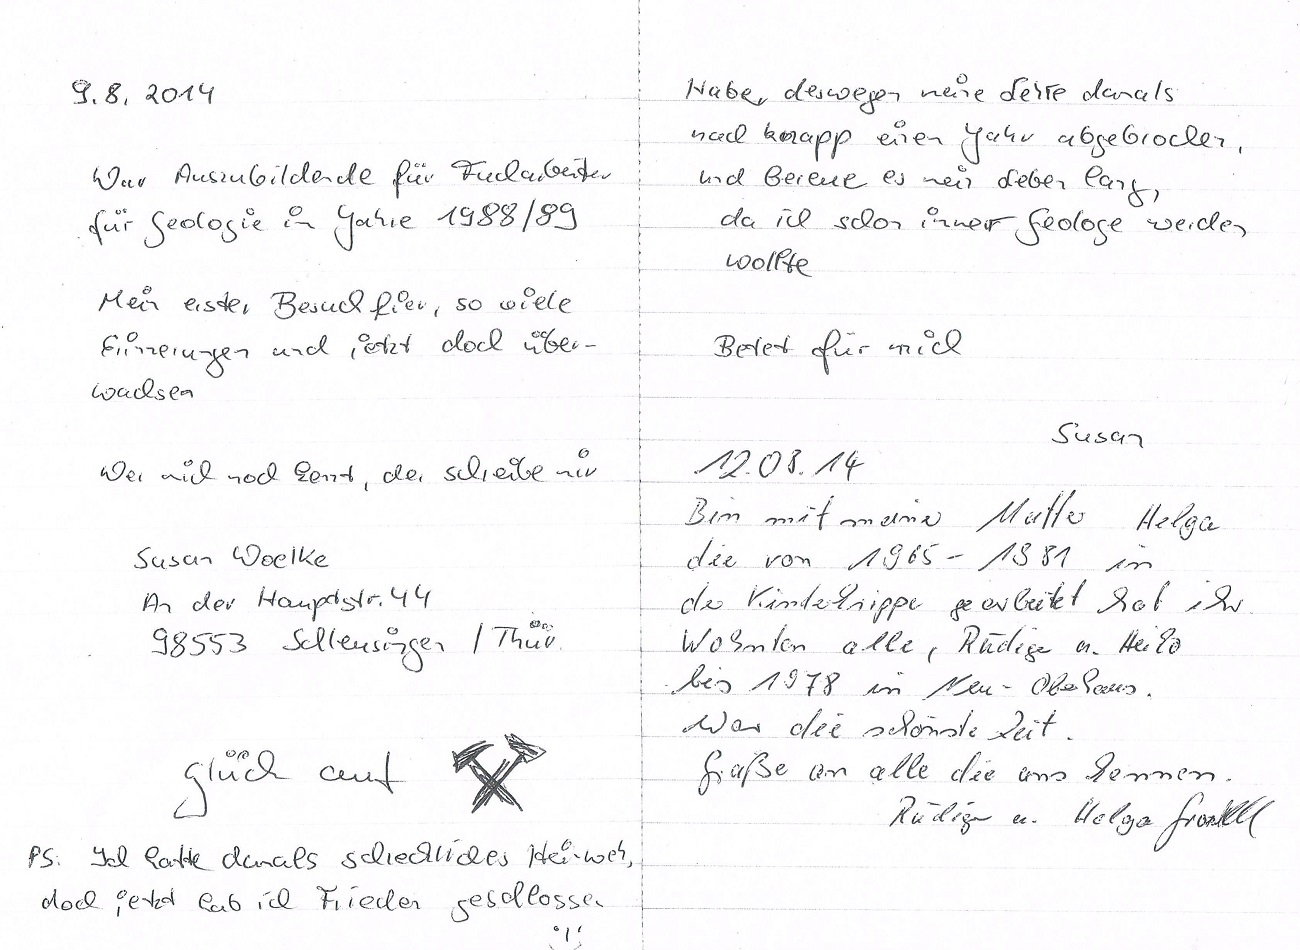 9.8. 2014
War Auszubildende für Facharbeiter
für Geologie in Jahre 1988/89
Mein erster Besuch hier, so viele
Erinnerungen und jetzt doch über-
wachsen
Wer mich noch kennt, der schreibe mir
Susan Woelke
An der Hauptstr. 44
98553 Schleusingen / Thür.
Glück auf
PS: Ich hatte damals schreckliches Heimweh,
doch jetzt hab ich Frieden geschlossen
Habe, deswegen meine Lehre damals
nach knapp einen Jahr abgebrochen,
und Bereue es mein Leben lang,
da ich schon immer Geologe werden
wollte
Betet für mich
Susan
12.08.14
Bin mit meine Mutter Helga
die von 1965 - 1981 in
der Kinderkrippe gearbeitet hat ihr
Wohnten alle, Rüdiger u. Heiko
bis 1978 in Neu-Oberhaus.
War die schönste Zeit.
Grüße an alle die uns kennen.
Rüdiger u. Helga